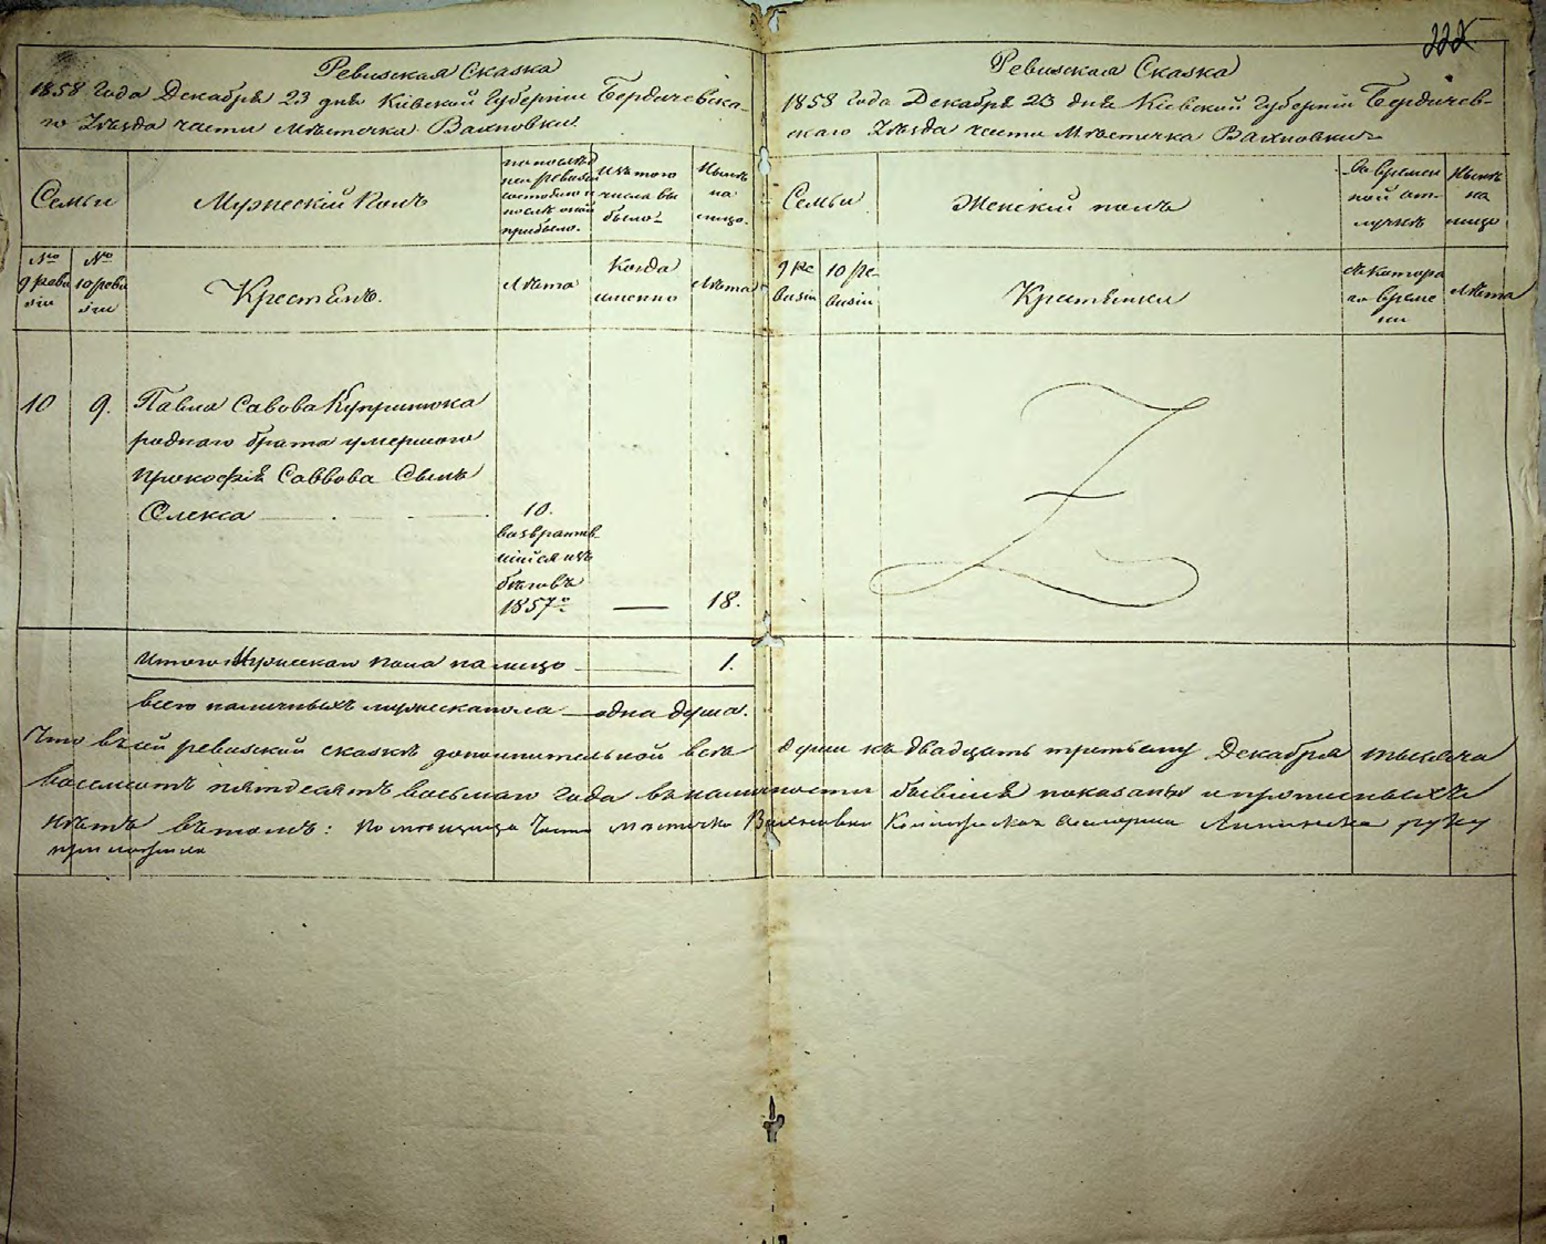 Ревизская Сказка
1858 года Декабря 23 дня Кіевской Губерніи Бердичевска-
го Уѣзда части Мѣстечка Вахновки
Семьи
Мужескій Полъ
по послѣд
ней ревизіи
состояло и
послѣ оной
прибыло.
Изъ того
числа вы
было
Нынѣ
на
лицо.
№
9 реви
зіи
№
10 реви
зіи
Крестьянъ.
Лѣта
Когда
именно
Лѣта
10
9.
Павла Савова Купринюка
роднаго брата умершаго
Прокофія Саввова Сынъ
Олекса
10.
возвратив
шійся изъ
бѣговъ
1857го
—
18.
Итого Мужеска пола на лицо
1.
Всего наличныхъ мужеска пола — одна душа.
Ревизская Сказка
1858 года Декабря 23 дня Кіевской Губерніи Бердичев-
скаго Уѣзда части Мѣстечка Вахновки
Семьи
Женскій полъ
Во времен
ной от-
лучкѣ
Нынѣ
на
лицо
9 ре
визіи
10 ре-
визіи
Крестьянки
Съ котора
го време
ни
Лѣта
Что въ сей ревизской сказкѣ дополнительной всѣ души къ двадцать третьему Декабря тысяча
восемсотъ пятдесятъ восьмаго года въ наличности бывшія показаны и прописныхъ
нѣтъ въ томъ: Помощица Части мѣстечка Вахновки руку
приложила